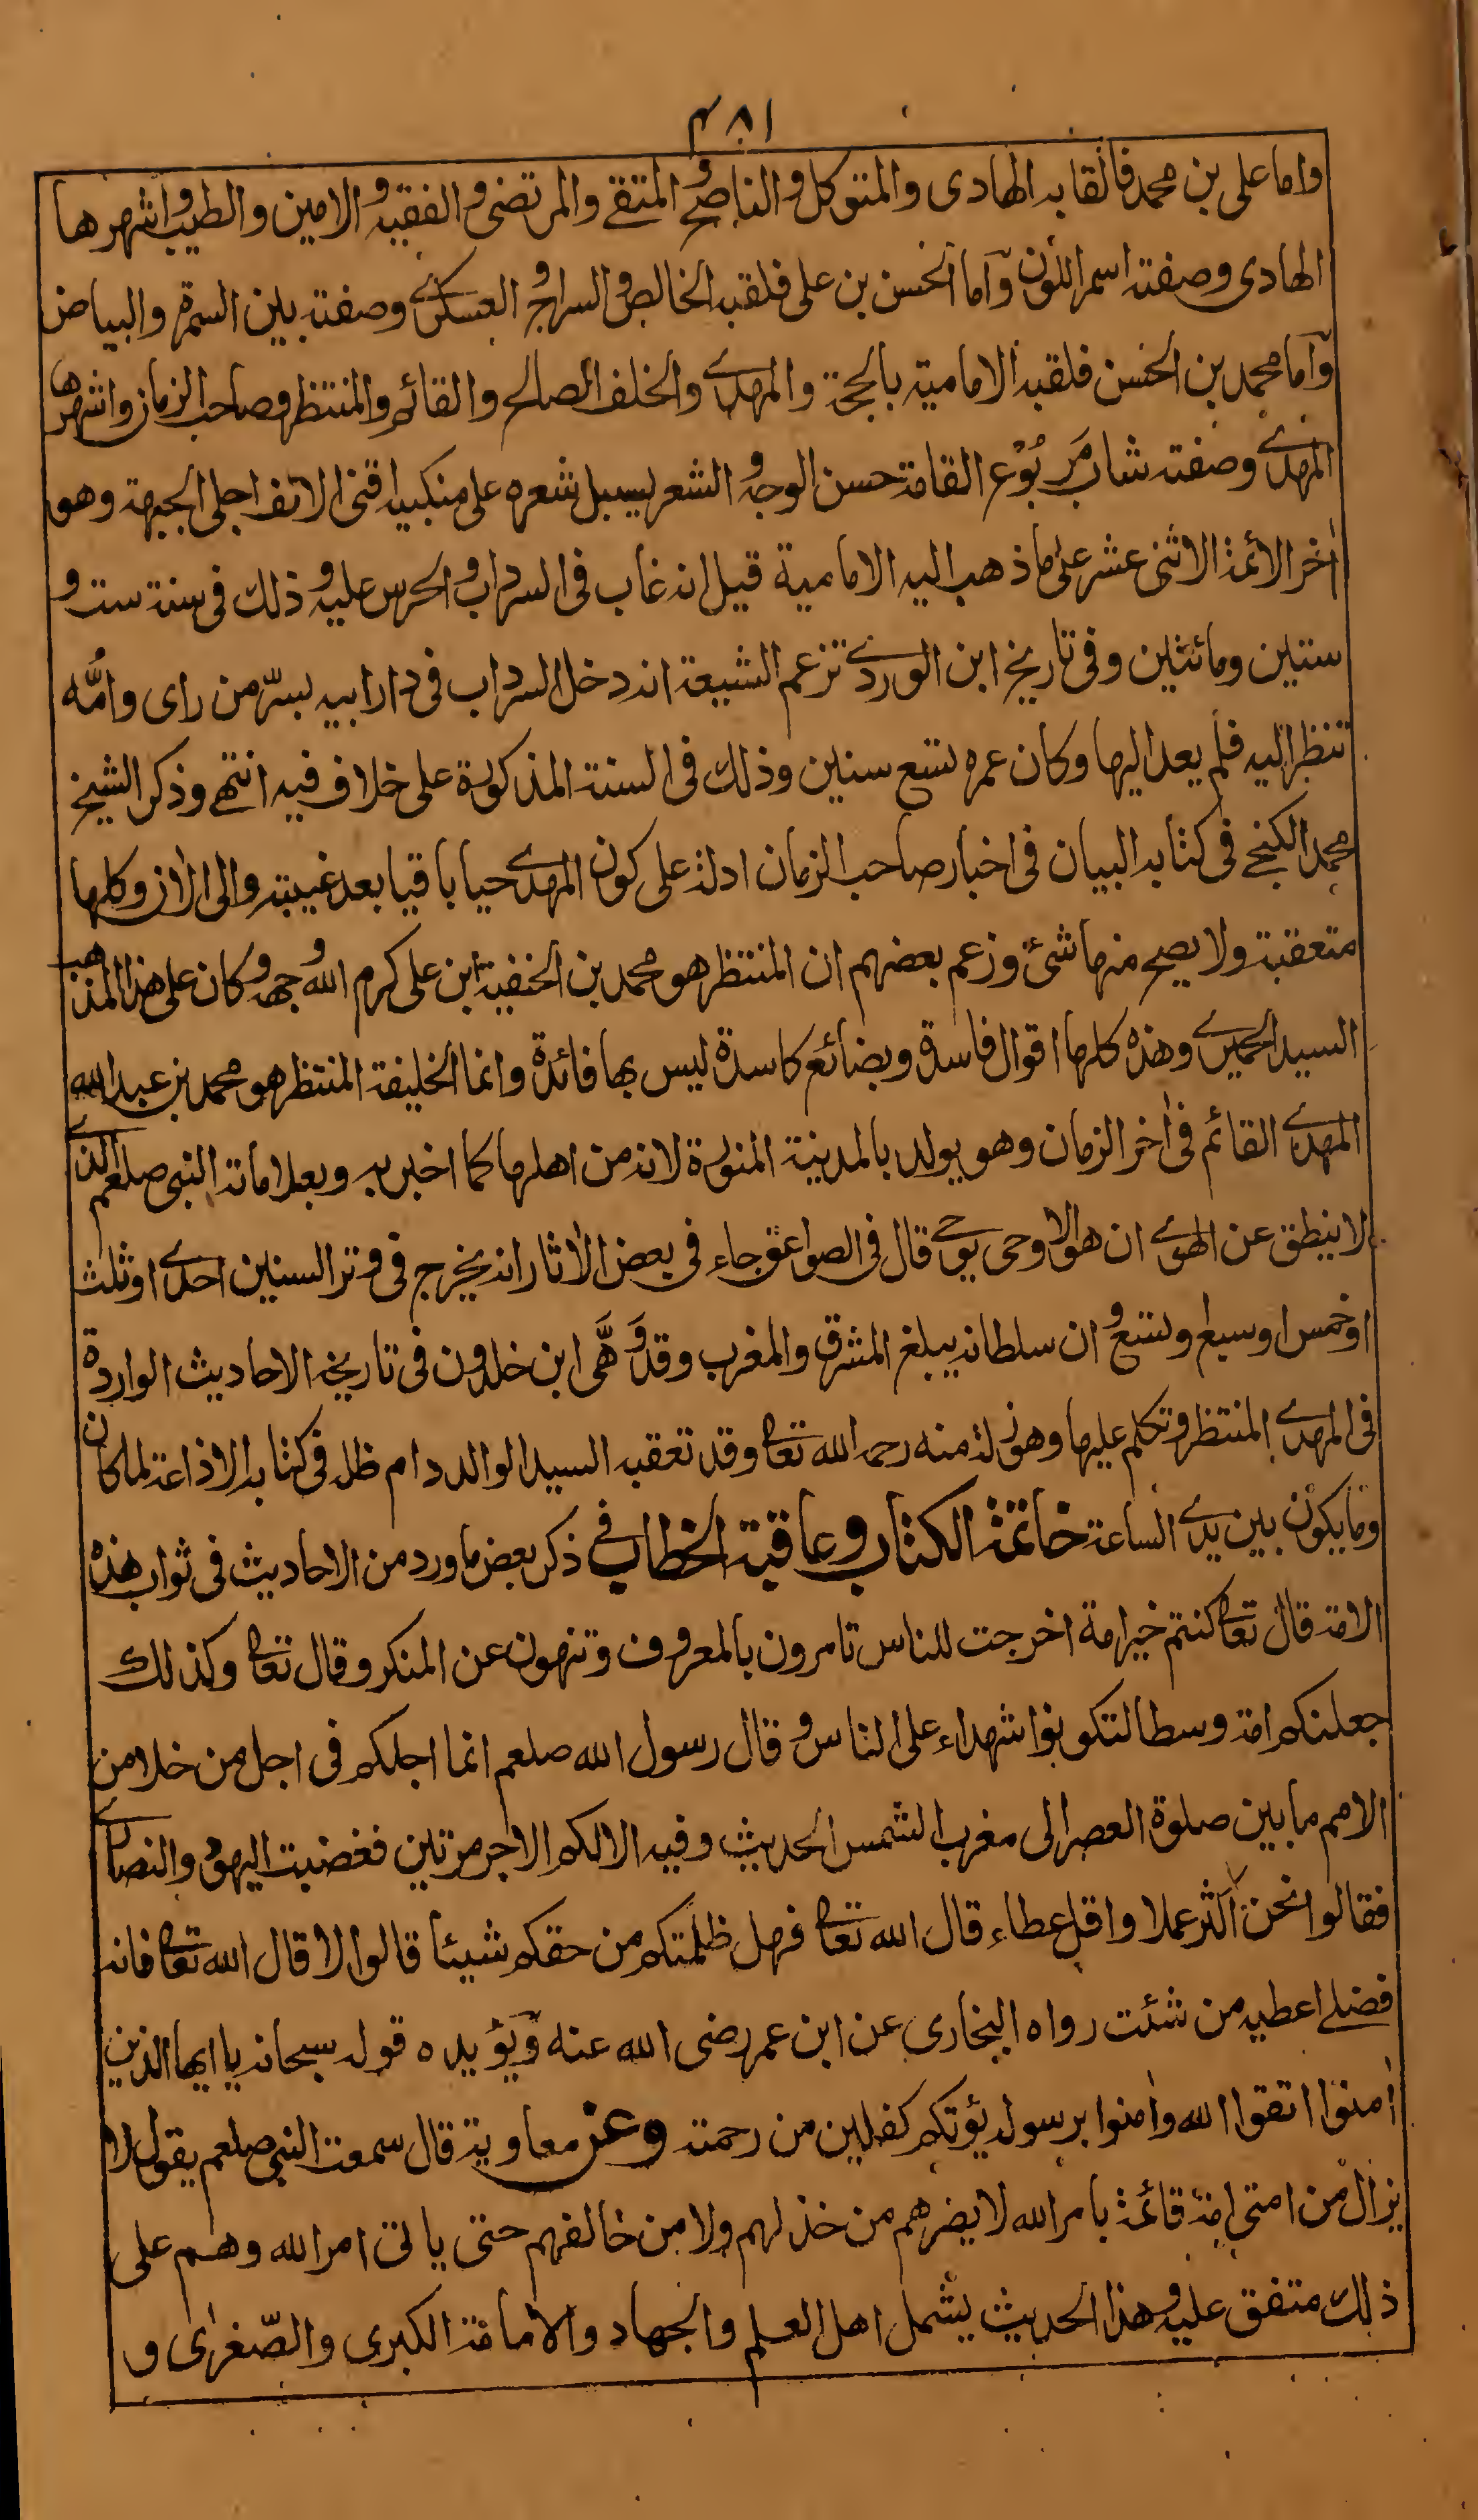 ٤٨١
واما علی بن محمد فالقابه الهادی والمتوکل والناصح والمتقے والمرتضی والفقیه والامین والطیب واشهرها
الهادی وصفته اسمر اللون واما الحسن بن علی فلقبه الخالص والسراج والعسکری وصفته بین السمرة والبیاض
واما محمد بن الحسن فلقبه الامامیة بالحجة والمهدے والخلف الصالح والقائم والمنتظر وصاحب الزمان واشهرها
المهدے وصفته شاب مَربُوْع القامة حسن الوجه والشعر لیسبل شعره علی منکبیه اقنی الانف اجلی الجبهة وهو
اٰخر الائمة الاثنی عشر علی ما ذهب الیه الامامیة قیل انه غاب فی السرداب والحرس علیه وذلك فی سنة ست و
ستین ومائتین وفی تاریخ ابن الوردے تزعم الشیعة انه دخل السرداب فی دار ابیه بسرّ من رای وامُّه
تنظر الیه فلم یعد الیها وکان عمره تسع سنین وذلك فی السنة المذکورة علی خلاف فیه انتهے وذکر الشیخ
محمد الکنجے فی کتابه البیان فی اخبار صاحب الزمان ادلة علی کون المهدے حیا باقیا بعد غیبته والی الاٰن وکلها
متعقبة ولا یصح منها شئ وزعم بعضهم ان المنتظر هو محمد بن الحنفیة ابن علی کرم الله وجهه وکان علی هذا المذهب
السید الحمیرے وهذه کلها اقوال فاسدة وبضائع کاسدة لیس بها فائدة وانما الخلیفة المنتظر هو محمد بن عبد الله
المهدے القائم فی اٰخر الزمان وهو یولد بالمدینة المنورة لانه من اهلها کما اخبر به وبعلاماته النبی صلعم الذے
لا ینطق عن الهوے ان هو الا وحی یوحے قال فی الصواعق جاء فی بعض الاٰثار انه یخرج فی وتر السنین احدے او ثلث
او خمس او سبع وتسع وان سلطانه یبلغ المشرق والمغرب وقد وَهَّی ابن خلدون فی تاریخه الاحادیث الواردة
فی المهدے المنتظر وتکلم علیها وهو زلة منه رحمه الله تعا وقد تعقبه السید الوالد دام ظله فی کتابه الاذاعة لما کان
وما یکون بین یدے الساعة خاتمة الکتاب وعاقبة الخطاب فی ذکر بعض ما ورد من الاحادیث فی ثواب هذه
الامة قال تعا کنتم خیر امة اخرجت للناس تامرون بالمعروف وتنهون عن المنکر وقال تعا وکذلك
جعلنکم امة وسطا لتکونوا شهداء علی الناس وقال رسول الله صلعم انما اجلکم فی اجل من خلا من
الامم ما بین صلوة العصر الی مغرب الشمس الحدیث وفیه الا لکم الاجر مرتین فغضبت الیهود والنصارے
فقالوا نحن اکثر عملا واقل عطاء قال الله تعا فهل ظلمتکم من حقکم شیئا قالوا لا قال الله تعا فانه
فضلے اعطیه من شئت رواه البخاری عن ابن عمر رضی الله عنه ویؤیده قوله سبحانه یا ایها الذین
اٰمنوا اتقوا الله واٰمنوا برسوله یؤتکم کفلین من رحمته وعن معاویة قال سمعت النبی صلعم یقول لا
یزال من امتی امة قائمة بامر الله لا یضرهم من خذلهم ولا من خالفهم حتی یاتی امر الله وهم علی
ذلك متفق علیه وهذا الحدیث یشمل اهل العلم والجهاد والامامة الکبری والصّغرٰی و